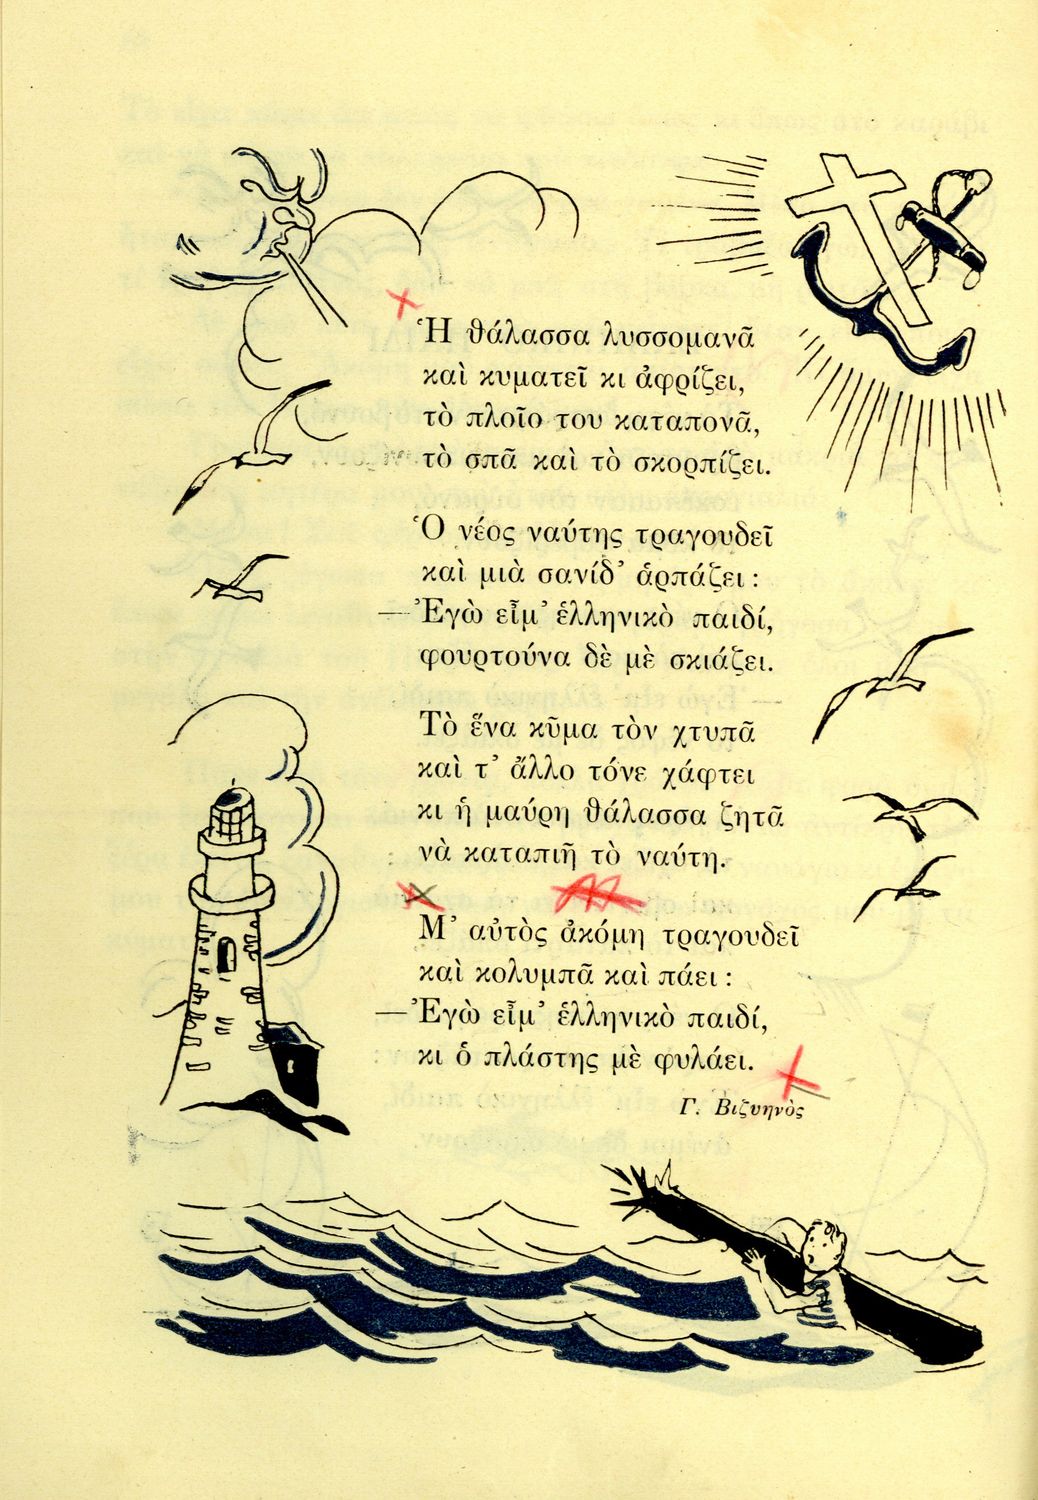 Ἡ θάλασσα λυσσομανᾶ
καὶ κυματεῖ κι ἀφρίζει,
τὸ πλοῖο του καταπονᾶ,
τὸ σπᾶ καὶ τὸ σκορπίζει.
Ὁ νέος ναύτης τραγουδεῖ
καὶ μιὰ σανίδ’ ἁρπάζει :
—Ἐγὼ εἶμ’ ἑλληνικὸ παιδί,
φουρτούνα δὲ μὲ σκιάζει.
Τὸ ἕνα κῦμα τὸν χτυπᾶ
καὶ τ’ ἄλλο τόνε χάφτει
κι ἡ μαύρη θάλασσα ζητᾶ
νὰ καταπιῇ τὸ ναύτη.
Μ’ αὐτὸς ἀκόμη τραγουδεῖ
καὶ κολυμπᾶ καὶ πάει :
—Ἐγὼ εἶμ’ ἑλληνικὸ παιδί,
κι ὁ πλάστης μὲ φυλάει.
Γ. Βιζυηνὸς